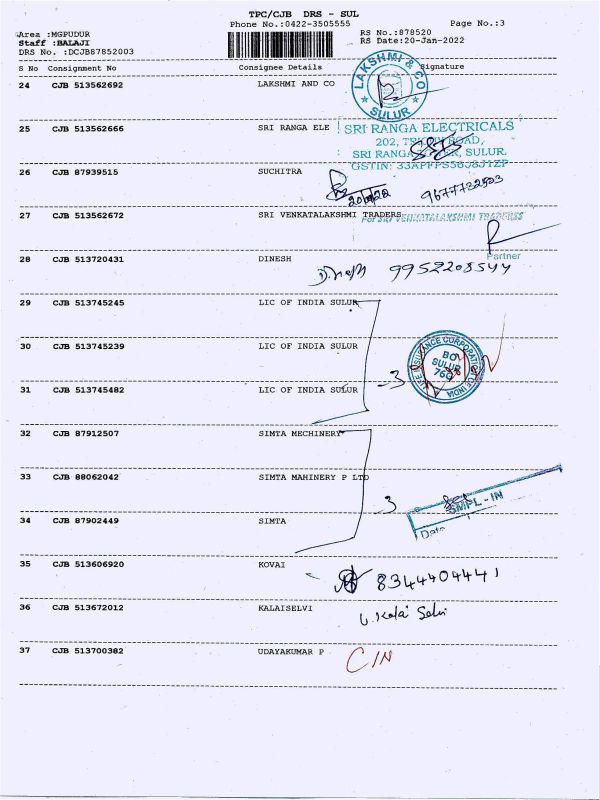 TPC/CJB DRS - SUL
Phone No.:0422-3505555
Page No.:3
Area :MGPUDUR
RS No.:878520
Staff :BALAJI
RS Date:20-Jan-2022
DRS No. :DCJB87852003
S No Consignment No Consignee Details Signature
LAKSHMI & CO
SULUR
24 CJB 513562692 LAKSHMI AND CO
25 CJB 513562666 SRI RANGA ELE
SRI RANGA ELECTRICALS
ROAD,
SULUR.
26 CJB 87939515 SUCHITRA
9677732503
27 CJB 513562672 SRI VENKATALAKSHMI TRADERS
For SRI VENKATALAKSHMI TRADERSS
Partner
28 CJB 513720431 DINESH
9952208544
29 CJB 513745245 LIC OF INDIA SULUR
30 CJB 513745239 LIC OF INDIA SULUR
BO
SULUR
31 CJB 513745482 LIC OF INDIA SULUR
3
32 CJB 87912507 SIMTA MECHINERY
33 CJB 88062042 SIMTA MAHINERY P LTD
3
SMPL - IN
Date
34 CJB 87902449 SIMTA
35 CJB 513606920 KOVAI
8344404441
36 CJB 513672012 KALAISELVI
Kalai Selvi
37 CJB 513700382 UDAYAKUMAR P
C/N